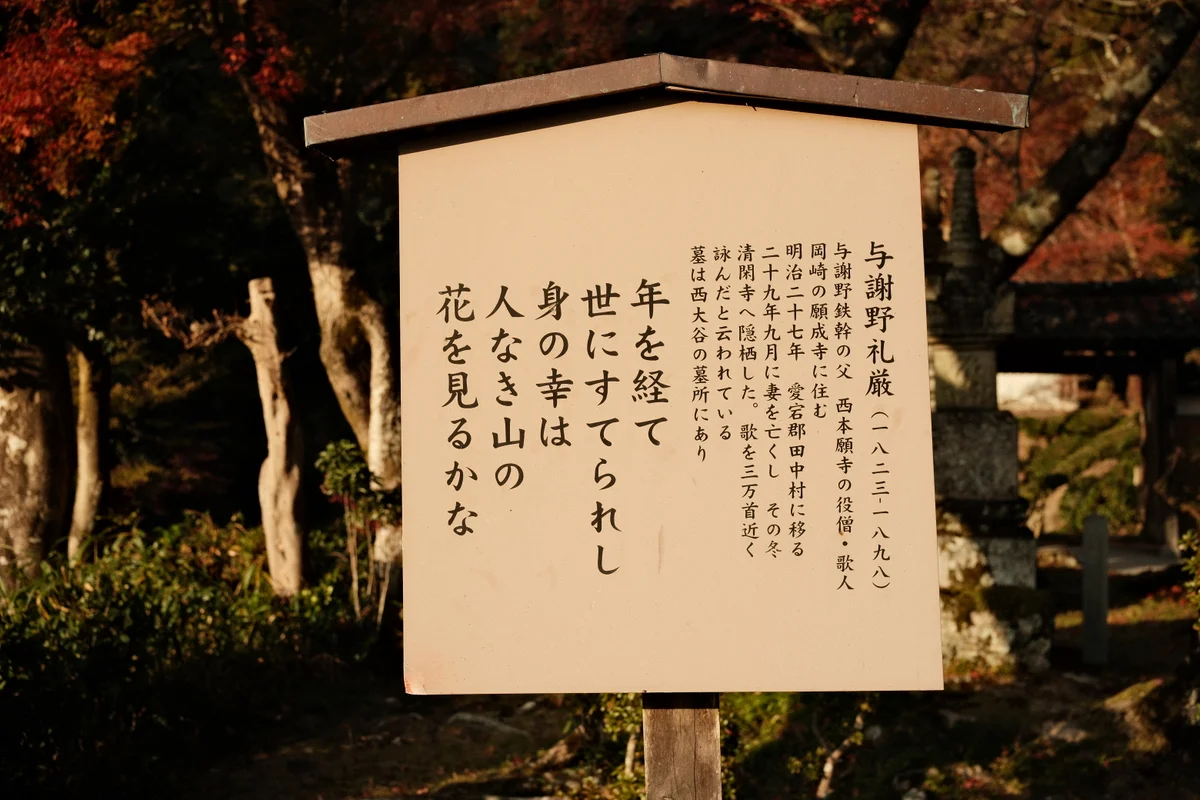 与謝野礼厳（一八二三―一八九八）
与謝野鉄幹の父　西本願寺の役僧・歌人
岡崎の願成寺に住む
明治二十七年　愛宕郡田中村に移る
二十九年九月に妻を亡くし　その冬
清閑寺へ隠栖した。歌を三万首近く
詠んだと云われている
墓は西大谷の墓所にあり
年を経て
世にすてられし
身の幸は
人なき山の
花を見るかな